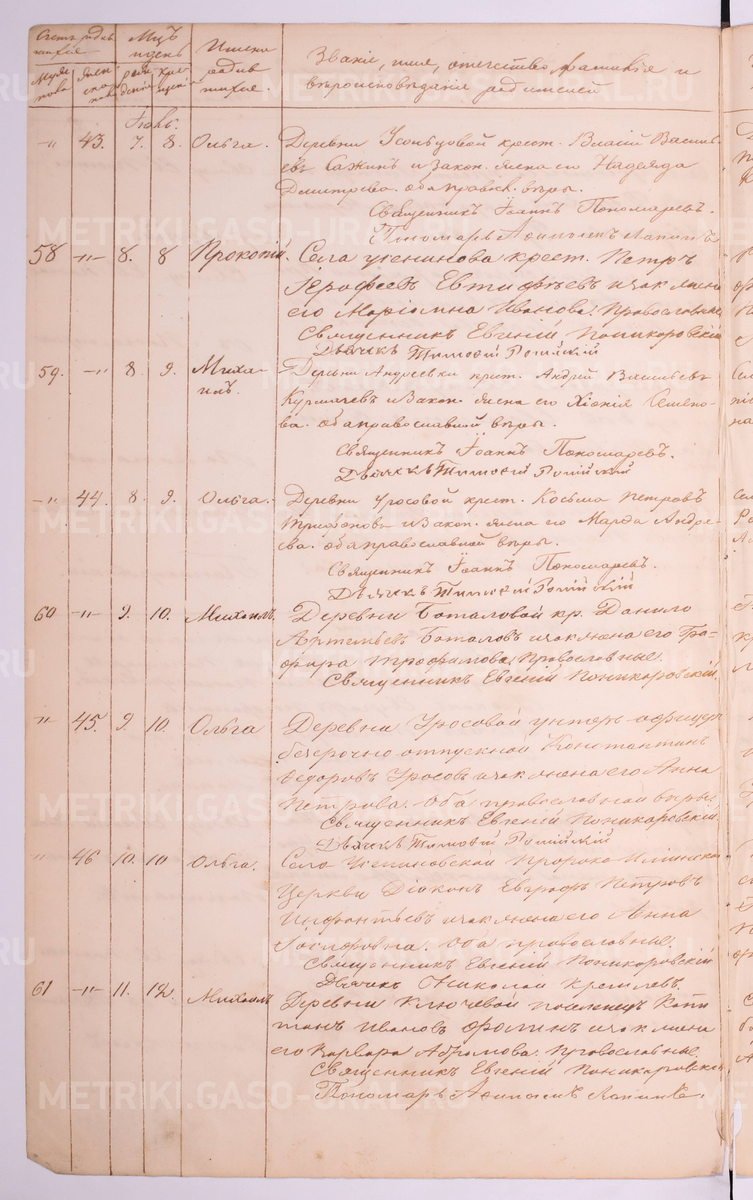 Счетъ родив-
шихся
Муже-
ска
Жен-
ска
Мѣц. и день
рож-
денія
кре-
щенія
Имена
родив-
шихся.
Званіе, имя, отчество, фамилія и
вѣроисповѣданіе родителей
Іюль.
-"- 43. 7. 8. Ольга. Деревни крест. Власій Василь-
евъ Сажинъ и закон. жена его Надежда
Димитріева. оба правосл. вѣры.
Священникъ Іоаннъ Пономаревъ.
Пономарь Лапинъ
58 -"- 8. 8 Прокопій. Села Ученикова крест. Петръ
Ерофеевъ Евтифѣевъ и зак. жена
его Маріамна Иванова; Православные
Священникъ Евгеній Поникоровскій
Дьячекъ Тимоѳей
59. -"- 8. 9. Миха-
илъ. Дервни Андреевки крест. Андрей Васильевъ
и закон. жена его Хіонія Семено-
ва. оба православной вѣры.
Священникъ Іоаннъ Пономаревъ.
Дьячекъ Тимоѳей
-"- 44. 8. 9. Ольга. Деревни Уросовой крест. Косьма Петровъ
Трифоновъ и закон. жена его Марѳа Андре-
ева. оба православной вѣры.
Священникъ Іоаннъ Пономаревъ.
Дьячекъ Тимоѳей
60 -"- 9. 10. Михаилъ. Деревни Боталовой кр. Данило
Артемьевъ Боталовъ и зак. жена его
Трофимова; Православные.
Священникъ Евгеній Поникоровскій.
" 45. 9. 10. Ольга Деревни Уросовой унтеръ-офицеръ
безсрочно-отпускной Константинъ
Ѳедоровъ Уросовъ и зак. жена его Анна
Петрова. Оба православной вѣры;
Священникъ Евгеній Поникоровскій.
Дьячекъ Тимоѳей
" 46 10. 10 Ольга. Села Пророко-Ильинской
Церкви Діаконъ Евграфъ Петровъ
Инфантьевъ и зак. жена его Анна
Іосифовна. Оба православные.
Священникъ Евгеній Поникоровскій
Дьячекъ Николай
61 -"- 11. 12. Михаилъ Деревни Ключевой поселенецъ Капи-
тонъ Ивановъ Фоминъ и зак. жена
его Варвара Абрамова; Православные.
Священникъ Евгеній Поникоровскій
Пономарь Лапинъ.
METRIKI.GASO-URAL.RU